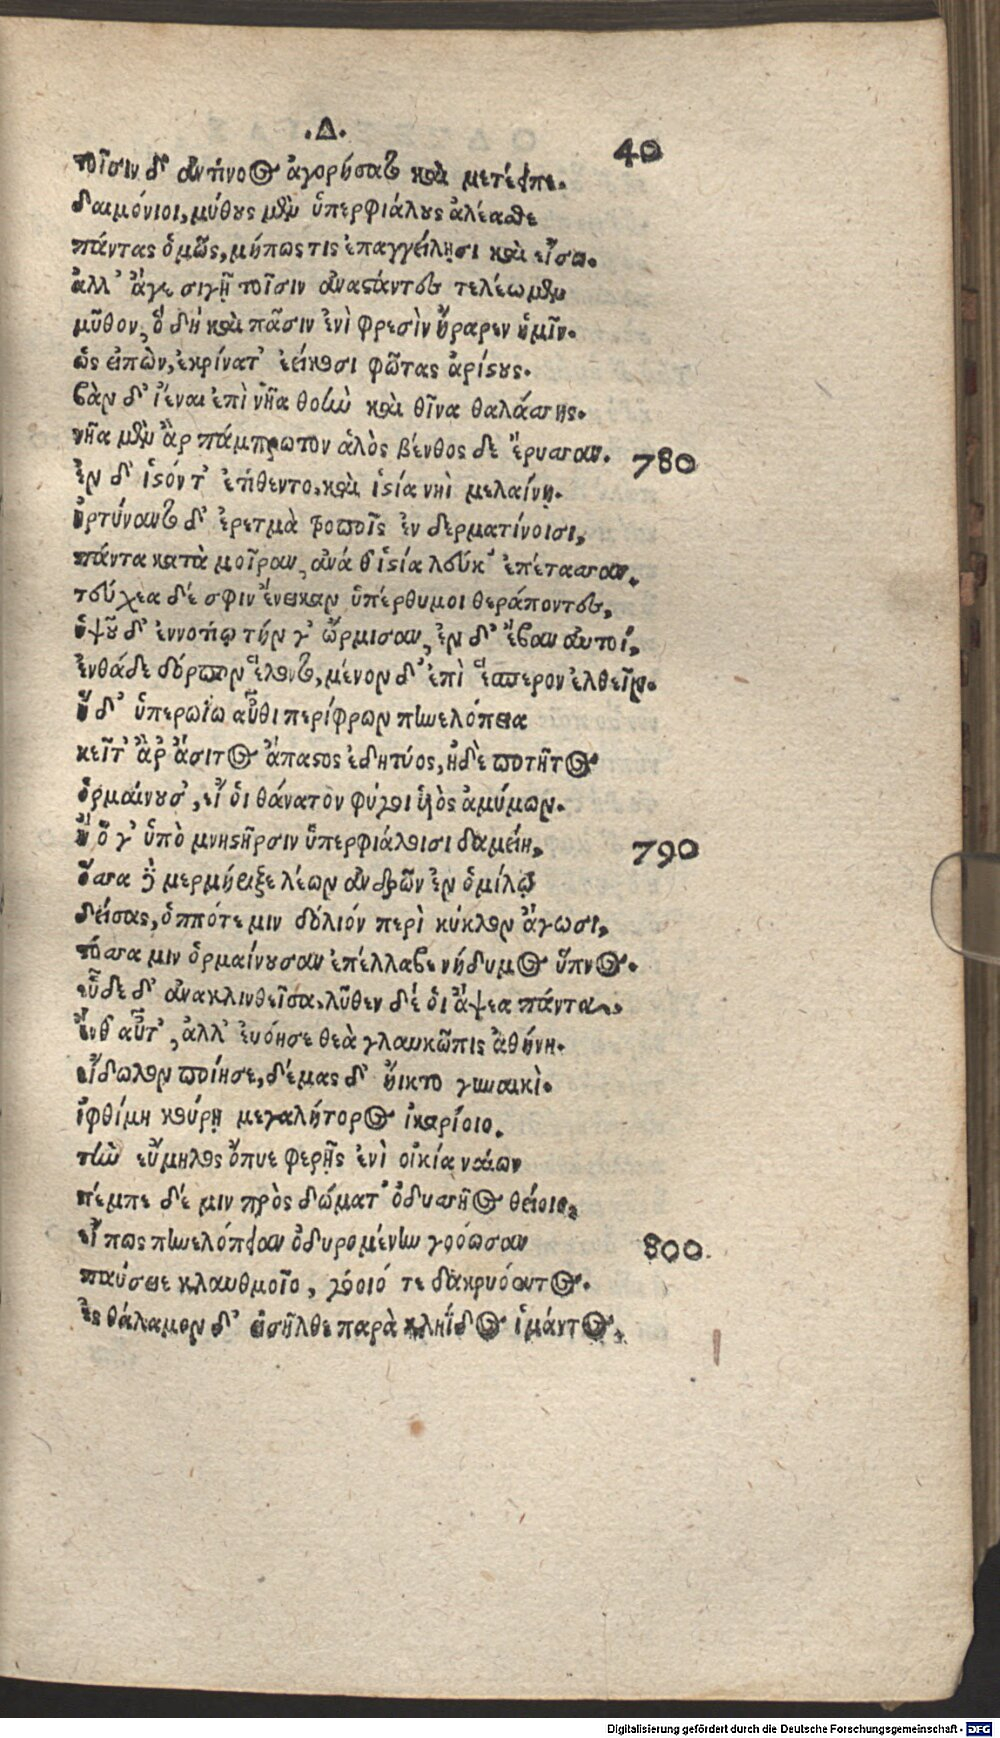 .Δ.
40
τοῖσιν δ' ἀντίνοος ἀγορήσατο καὶ μετέειπε.
δαιμόνιοι, μύθους μὲν ὑπερφιάλους ἀλέασθε
πάντας ὁμῶς, μήπως τις ἐπαγγείλῃσι καὶ εἴσω.
ἀλλ' ἄγε σιγῇ τοῖσιν ἀναστάντες τελέωμεν
μῦθον, ὃ δὴ καὶ πᾶσιν ἐνὶ φρεσὶν ἤραρεν ἡμῖν.
ὣς εἰπὼν, ἐκρίνατ' ἐείκοσι φῶτας ἀρίστους.
βὰν δ' ἰέναι ἐπὶ νῆα θοὴν καὶ θῖνα θαλάσσης.
νῆα μὲν ἂρ πάμπρωτον ἁλὸς βένθος δὲ ἔρυσσαν. 780
ἐν δ' ἱστόν τ' ἐτίθεντο, καὶ ἱστία νηῒ μελαίνῃ.
ἠρτύναντο δ' ἐρετμὰ τροποῖς ἐν δερματίνοισι,
πάντα κατὰ μοῖραν, ἀνά θ' ἱστία λεύκ' ἐπέτασσαν.
τεύχεα δέ σφιν ἔνεικαν ὑπέρθυμοι θεράποντες,
ὑψοῦ δ' ἐννοτίῳ τήν γ' ὥρμισαν, ἐν δ' ἔβαν αὐτοί,
ἐνθάδε δόρπον ἕλοντο, μένον δ' ἐπὶ ἕσπερον ἐλθεῖν.
ἡ δ' ὑπερωΐῳ αὖθι περίφρων πηνελόπεια
κεῖτ' ἂρ ἄσιτος ἄπαστος ἐδητύος, ἠδὲ ποτῆτος
ὁρμαίνουσ', εἴ ὁι θάνατον φύγοι υἱὸς ἀμύμων.
ἢ ὅ γ' ὑπὸ μνηστῆρσιν ὑπερφιάλοισι δαμείη, 790
ὅσσα δὲ μερμήριξε λέων ἀνδρῶν ἐν ὁμίλῳ
δείσας, ὁππότε μιν δόλιόν περὶ κύκλον ἄγωσι,
τόσσα μιν ὁρμαίνουσαν ἐπέλλαβε νήδυμος ὕπνος.
εὗδε δ' ἀνακλινθεῖσα, λῦθεν δέ ὁι ἅψεα πάντα,
ἔνθ' αὖτ', ἀλλ' ἐνόησε θεὰ γλαυκῶπις ἀθήνη.
εἴδωλον ποίησε, δέμας δ' ἤικτο γυναικὶ.
ἰφθίμῃ κούρῃ μεγαλήτορος ἰκαρίοιο.
τὴν εὔμηλος ὄπυε φερῇς ἐνὶ οἰκία ναίων
πέμπε δέ μιν πρὸς δώματ' ὀδυσσῆος θείοιο,
εἴ πως πηνελόπειαν ὀδυρομένην γοόωσαν 800.
παύσειε κλαυθμοῖο, γόοιό τε δακρυόεντος.
ἐς θάλαμον δ' εἰσῆλθε παρὰ κληῗδος ἱμάντος,
Digitalisierung gefördert durch die Deutsche Forschungsgemeinschaft - DFG